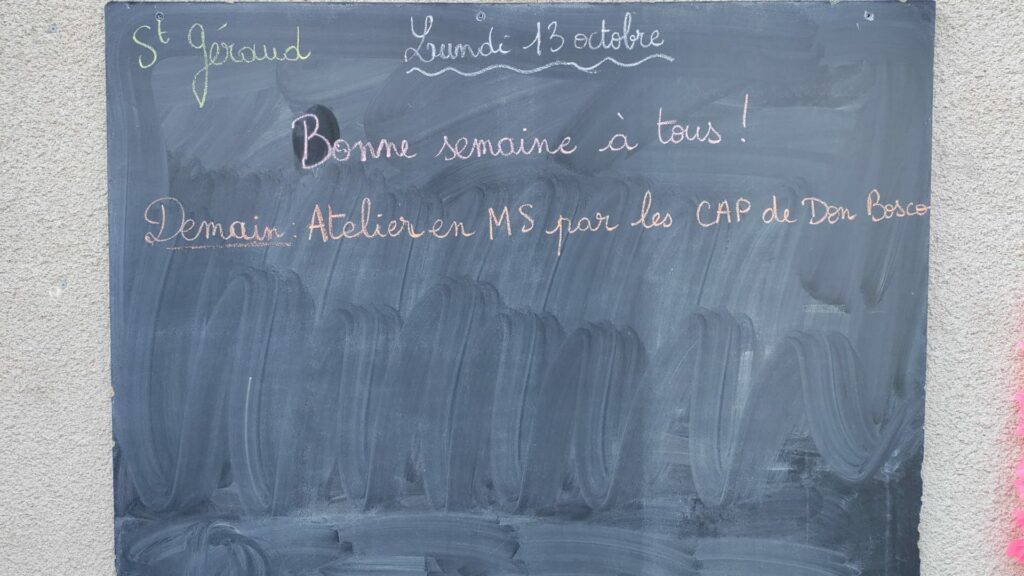 St Géraud
Lundi 13 octobre
Bonne semaine à tous !
Demain : Atelier en MS par les CAP de Don Bosco